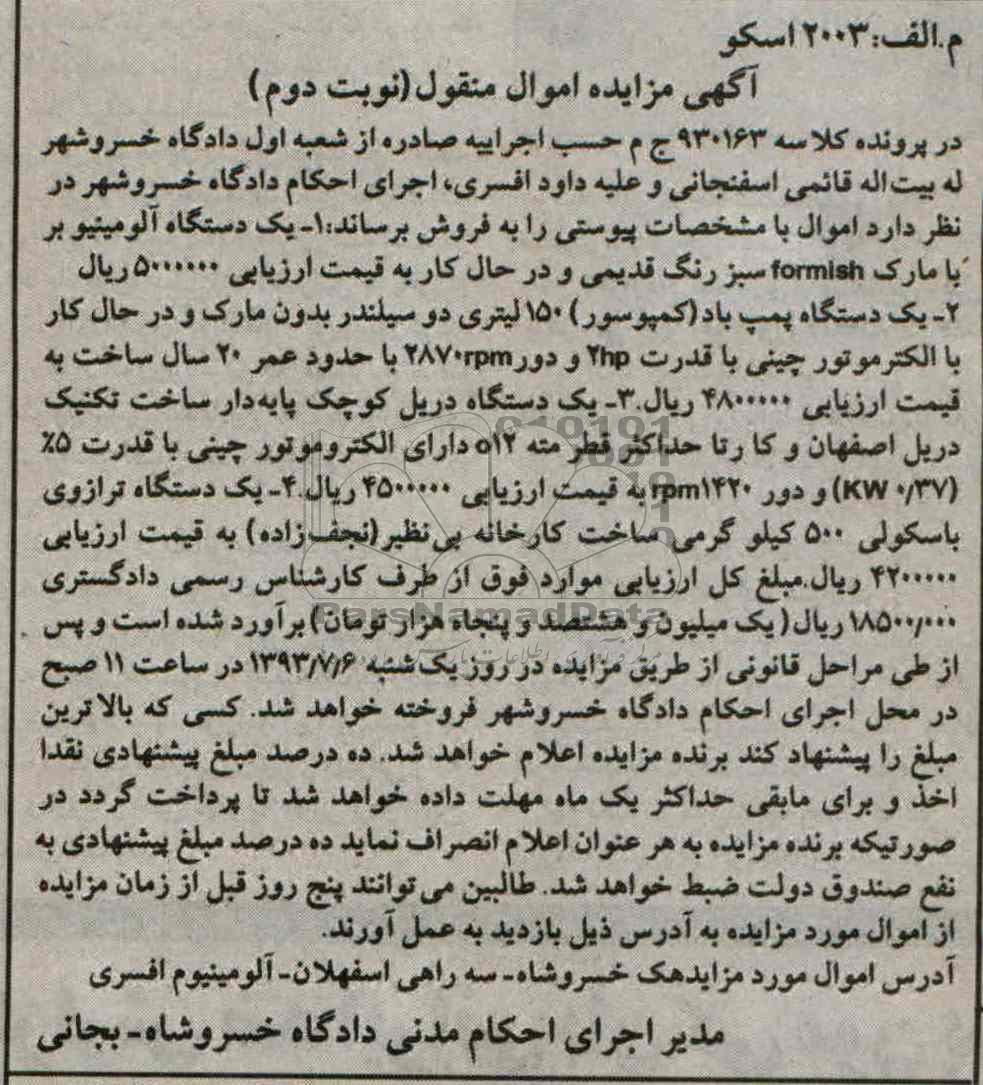 م.الف: ۲۰۰۳ اسکو
آگهی مزایده اموال منقول (نوبت دوم)
در پرونده کلاسه ۹۳۰۱۶۳ ج م حسب اجراییه صادره از شعبه اول دادگاه خسروشهر
له بیت اله قائمی اسفنجانی و علیه داود افسری، اجرای احکام دادگاه خسروشهر در
نظر دارد اموال با مشخصات پیوستی را به فروش برساند:۱- یک دستگاه آلومینیو بر
با مارک formish سبز رنگ قدیمی و در حال کار به قیمت ارزیابی ۵۰۰۰۰۰۰ ریال
۲- یک دستگاه پمپ باد (کمپوسور) ۱۵۰ لیتری دو سیلندر بدون مارک و در حال کار
با الکترموتور چینی با قدرت ۲hp و دور ۲۸۷۰rpm با حدود عمر ۲۰ سال ساخت به
قیمت ارزیابی ۴۸۰۰۰۰۰ ریال.۳- یک دستگاه دریل کوچک پایه‌دار ساخت تکنیک
دریل اصفهان و کا رتا حداکثر قطر مته o۱۲ دارای الکتروموتور چینی با قدرت ۵٪
(KW ۰/۳۷) و دور rpm۱۴۲۰ به قیمت ارزیابی ۴۵۰۰۰۰۰ ریال.۴- یک دستگاه ترازوی
باسکولی ۵۰۰ کیلو گرمی ساخت کارخانه بی‌نظیر (نجف‌زاده) به قیمت ارزیابی
۴۲۰۰۰۰۰ ریال.مبلغ کل ارزیابی موارد فوق از طرف کارشناس رسمی دادگستری
ParsNamadData
۱۸۵۰۰/۰۰۰ ریال (یک میلیون و هشتصد و پنجاه هزار تومان) برآورد شده است و پس
از طی مراحل قانونی از طریق مزایده در روز یک شنبه ۱۳۹۳/۷/۶ در ساعت ۱۱ صبح
در محل اجرای احکام دادگاه خسروشهر فروخته خواهد شد. کسی که بالا ترین
مبلغ را پیشنهاد کند برنده مزایده اعلام خواهد شد. ده درصد مبلغ پیشنهادی نقدا
اخذ و برای مابقی حداکثر یک ماه مهلت داده خواهد شد تا پرداخت گردد در
صورتیکه برنده مزایده به هر عنوان اعلام انصراف نماید ده درصد مبلغ پیشنهادی به
نفع صندوق دولت ضبط خواهد شد. طالبین می توانند پنج روز قبل از زمان مزایده
از اموال مورد مزایده به آدرس ذیل بازدید به عمل آورند.
آدرس اموال مورد مزایدهک خسروشاه- سه راهی اسفهلان- آلومینیوم افسری
مدیر اجرای احکام مدنی دادگاه خسروشاه- بجانی